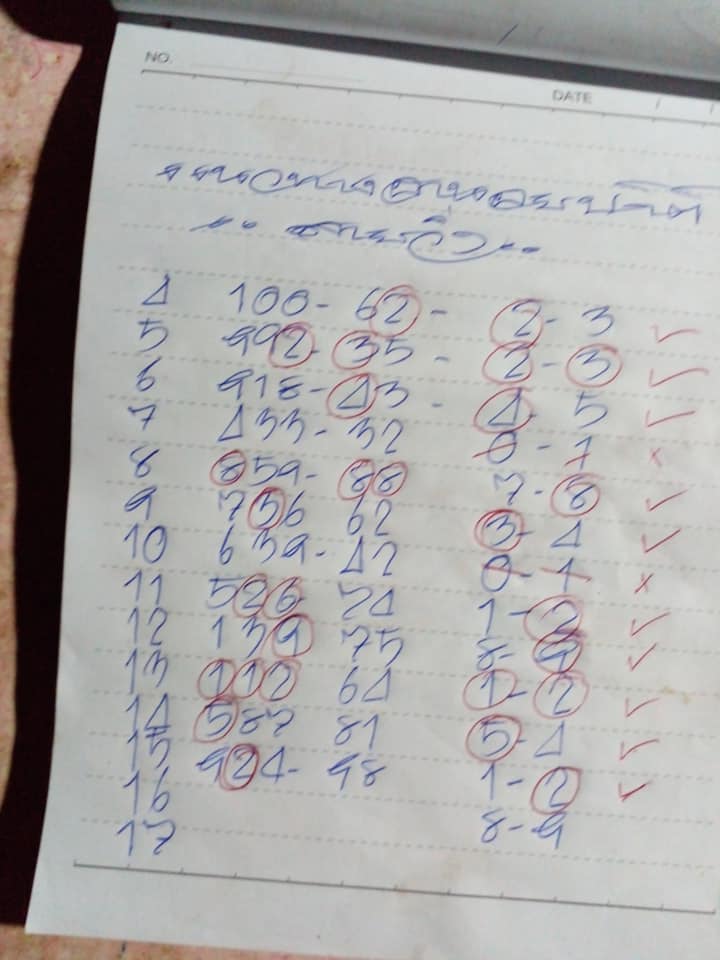 แนวทางฮานอยปกติ
4 100- 62 - 2- 3 ✓
5 992- 35 - 2- 3 ✓
6 918- 43 - 4- 5 ✓
7 433- 32 0 - 1 ×
8 859- 88 7- 8 ✓
9 756 62 3- 4 ✓
10 639- 42 0- 1 ×
11 526 74 1- 2 ✓
12 139 75 8- 9 ✓
13 112 64 1- 2 ✓
14 587 81 5- 4 ✓
15 924- 98 1- 2 ✓
16 8- 9
17
NO.
DATE / /